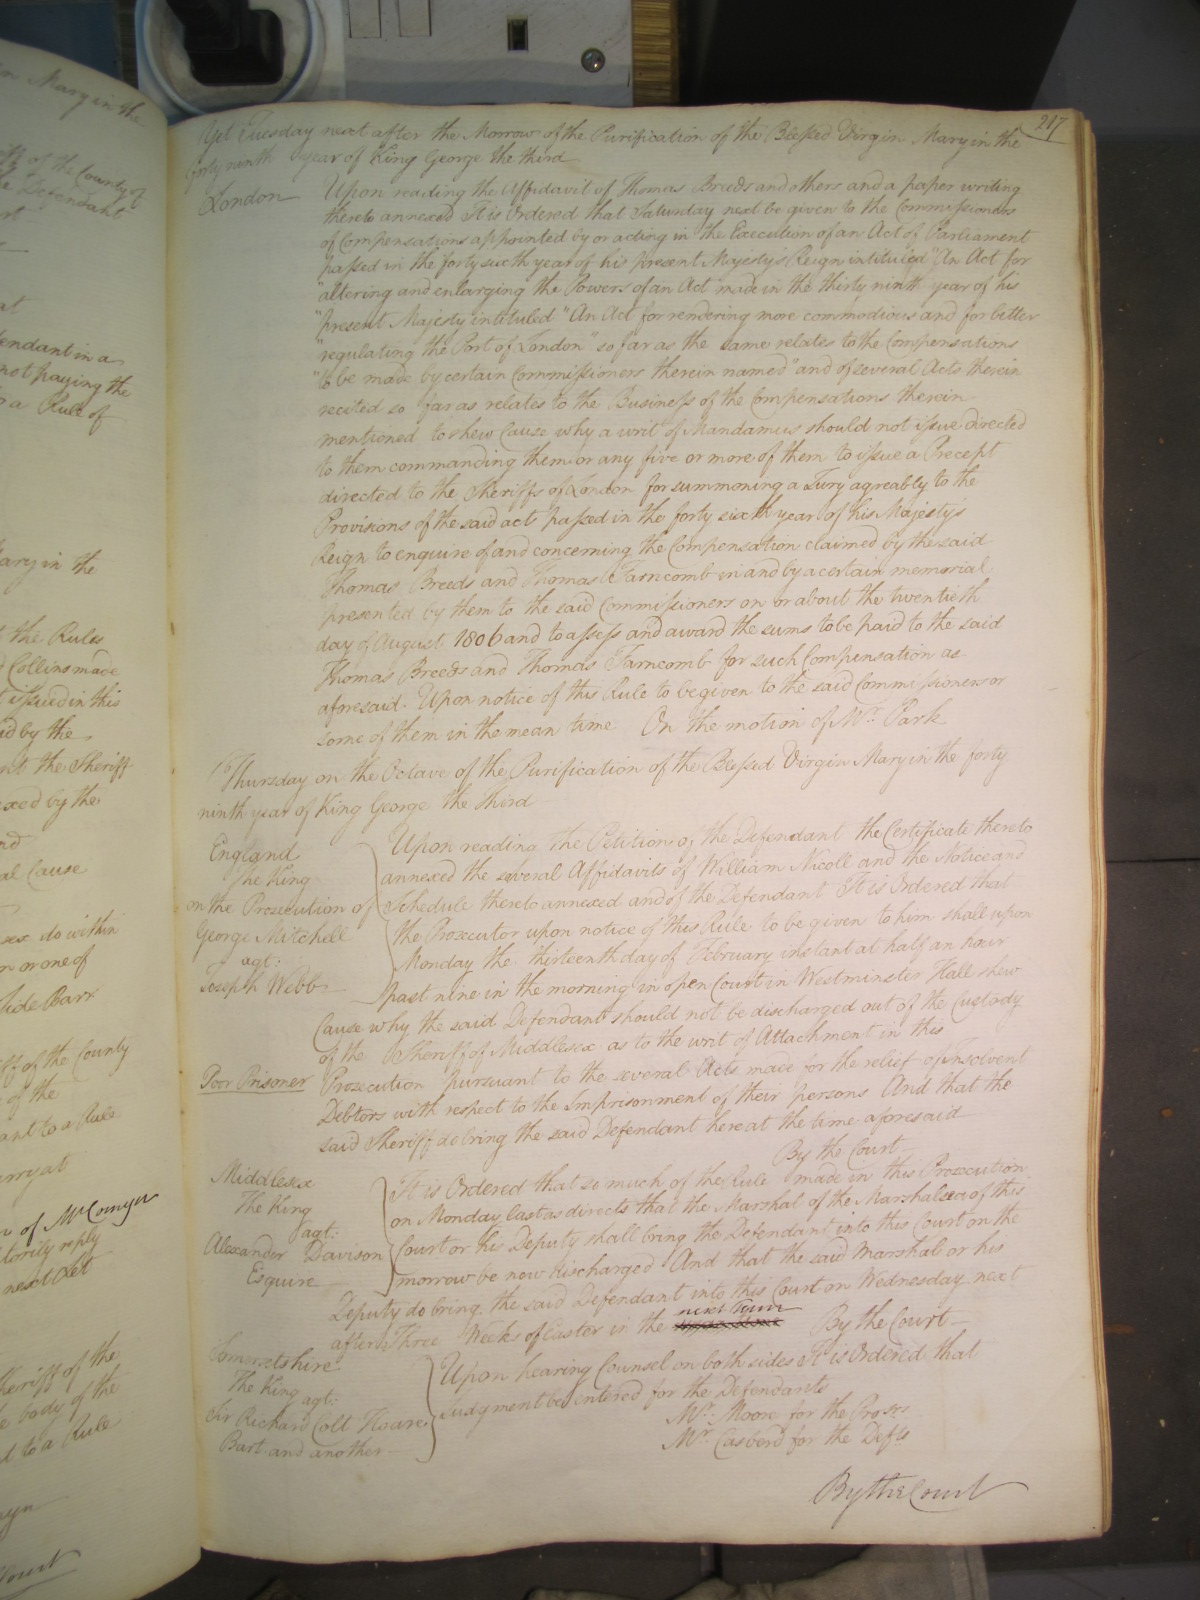 in Mary in the
of the County of
Defendant
endant in a
not paying the
a Rule of
Mary in the
the Rules
Collins made
issued in this
id by the
the Sheriff
xed by the
al Cause
do within
or one of
Side Barr
iff of the County
of the
ant to a Rule
of Mr Comyn
torily reply
next Let
Sheriff of the
body of the
to a Rule
Court
217
Yet Tuesday next after the Morrow of the Purification of the Blessed Virgin Mary in the
forty ninth year of King George the third
London Upon reading the Affidavit of Thomas Breeds and others and a paper writing
thereto annexed It is Ordered that Saturday next be given to the Commissioners
of Compensations appointed by or acting in the Execution of an Act of Parliament
passed in the forty sixth year of his present Majestys Reign intituled "An Act for
"altering and enlarging the Powers of an Act made in the thirty ninth year of his
"present Majesty intituled "An Act for rendering more commodious and for better
"regulating the Port of London" so far as the same relates to the Compensations
"to be made by certain Commissioners therein named" and of several Acts therein
recited so far as relates to the Business of the Compensations therein
mentioned to shew Cause why a writ of Mandamus should not issue directed
to them commanding them or any five or more of them to issue a Precept
directed to the Sheriffs of London for summoning a Jury agreably to the
Provisions of the said act passed in the forty sixth year of his Majesty's
Reign to enquire of and concerning the Compensation claimed by the said
Thomas Breeds and Thomas Farncomb in and by a certain memorial
presented by them to the said Commissioners on or about the twentieth
day of August 1806 and to assess and award the sums to be paid to the said
Thomas Breeds and Thomas Farncomb for such Compensation as
aforesaid. Upon notice of this Rule to be given to the said Commissioners or
some of them in the mean time. On the motion of Mr. Park
Thursday on the Octave of the Purification of the Blessed Virgin Mary in the forty
ninth year of King George the Third
England
The King
on the Prosecution of
George Mitchell
agt:
Joseph Webb
Upon reading the Petition of the Defendant the Certificate thereto
annexed the several Affidavits of William Nicoll and the Notice and
Schedule thereto annexed and of the Defendant It is Ordered that
the Prosecutor upon notice of this Rule to be given to him shall upon
Monday the thirteenth day of February instant at half an hour
past nine in the morning in open Court in Westminster Hall shew
Cause why the said Defendant should not be discharged out of the Custody
of the Sheriff of Middlesex as to the writ of Attachment in this
Poor Prisoner Prosecution pursuant to the several Acts made for the relief of Insolvent
Debtors with respect to the Imprisonment of their persons And that the
said Sheriff do bring the said Defendant here at the time aforesaid
By the Court
Middlesex
The King
agt:
Alexander Davison
Esquire
It is Ordered that so much of the Rule made in this Prosecution
on Monday last as directs that the Marshal of the Marshalsea of this
Court or his Deputy shall bring the Defendant into this Court on the
morrow be now discharged And that the said Marshal or his
Deputy do bring the said Defendant into this Court on Wednesday next
after Three Weeks of Easter in the next Term By the Court
Somersetshire
The King agt:
Sir Richard Colt Hoare
Bart and another
Upon hearing Counsel on both sides It is Ordered that
Judgment be entered for the Defendants
Mr. Moore for the Prosrs
Mr. Casberd for the Defts
By the Court